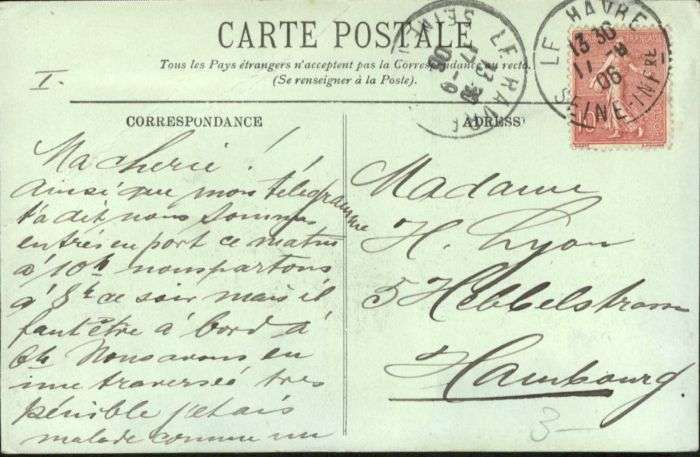 CARTE POSTALE
Tous les Pays étrangers n'acceptent pas la Correspondance au recto.
(Se renseigner à la Poste).
I.
CORRESPONDANCE
Ma cherie!
Ainsi que mon télégramme
t'a dit nous sommes
entrés en port ce matin
à 10h nous partons
à 8h ce soir mais il
faut être à bord à
6h Nous avons eu
une traversée tres
pénible j'etais
malade comme un
ADRESSE
Madame
H. Lyon
5 Hebbelstrasse
Hambourg.
3-
LE HAVRE
SEINE
LE HAVRE
13 30
11 - 9
06
SEINE-INFRE